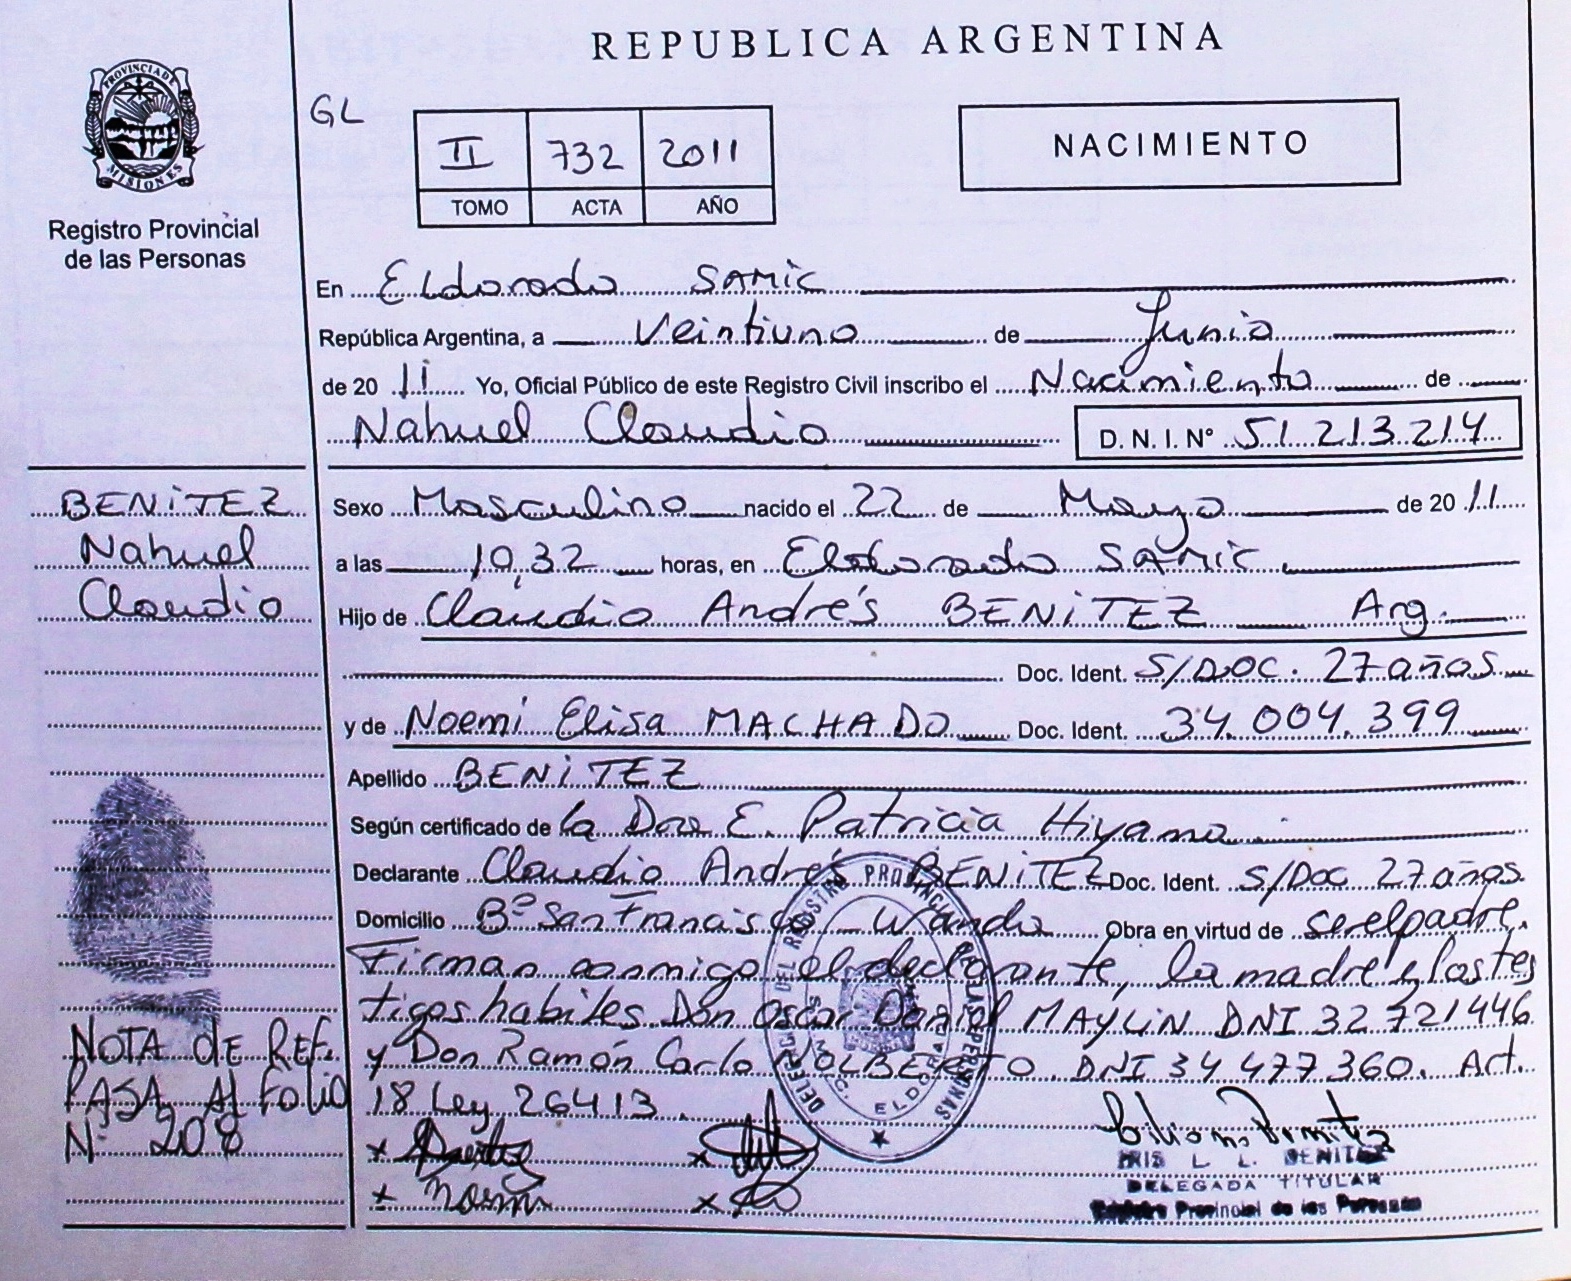 REPUBLICA ARGENTINA
PROVINCIA DE MISIONES
Registro Provincial
de las Personas
GL
II 732 2011
TOMO ACTA AÑO
NACIMIENTO
En Eldorado SAMIC
República Argentina, a Veintiuno de Junio
de 20 11 Yo, Oficial Público de este Registro Civil inscribo el Nacimiento de
Nahuel Claudio D. N. I. Nº 51.213.214
BENITEZ
Nahuel
Claudio
Sexo Masculino nacido el 22 de Mayo de 20 11
a las 10,32 horas, en Eldorado SAMIC
Hijo de Claudio Andrés BENITEZ Arg.
Doc. Ident. S/DOC. 27 años
y de Noemi Elisa MACHADO Doc. Ident. 34.004.399
Apellido BENITEZ
Según certificado de la Dra E. Patricia Hiyama
Declarante Claudio Andrés BENITEZ Doc. Ident. S/Doc 27 años
Domicilio Bº San Francisco Wanda Obra en virtud de ser el padre.
Firman conmigo el declarante, la madre y los tes
tigos habiles Don Oscar Daniel MAYLIN DNI 32 721446
y Don Ramón Carlo NOLBERTO DNI 34 477360. Art.
18 Ley 26413.
NOTA de REF.
PASA Al Folio
Nº 208
DELEGACION DEL REGISTRO PROVINCIAL DE LAS PERSONAS
ELDORADO
IRIS L. L. BENITEZ
DELEGADA TITULAR
Registro Provincial de las Personas